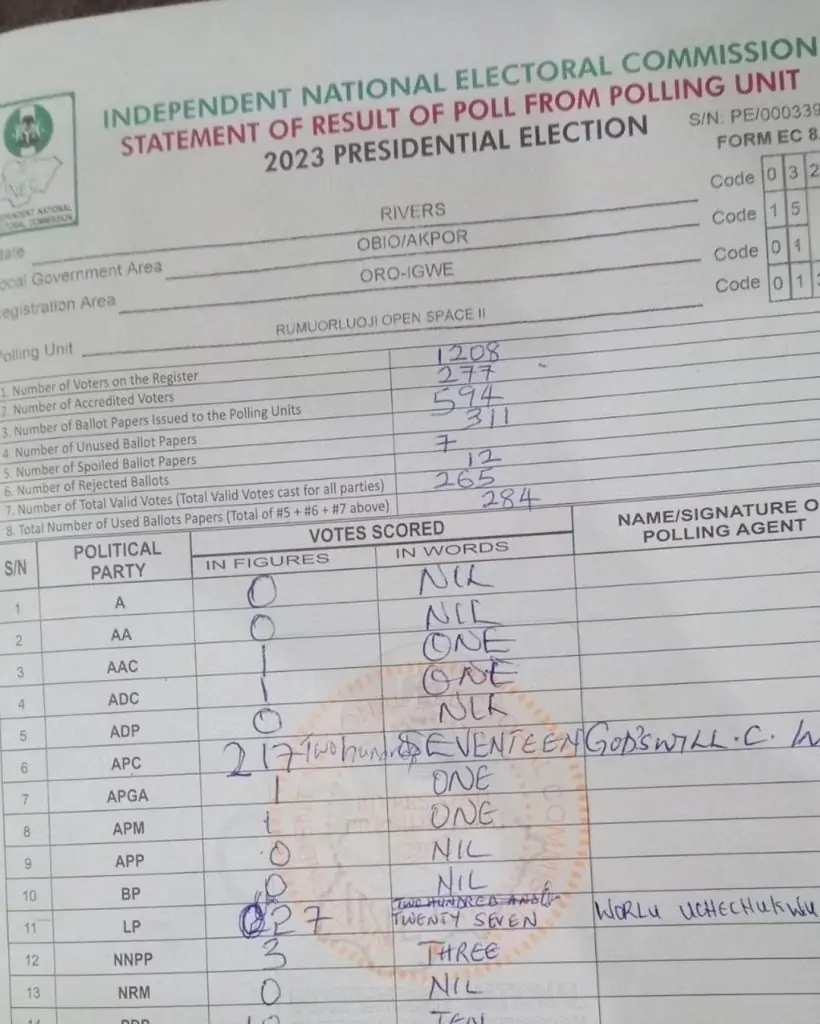 INDEPENDENT NATIONAL ELECTORAL COMMISSION
STATEMENT OF RESULT OF POLL FROM POLLING UNIT
2023 PRESIDENTIAL ELECTION
S/N: PE/000339
FORM EC 8
RIVERS Code 0 3 2
Local Government Area OBIO/AKPOR Code 1 5
Registration Area ORO-IGWE Code 0
Polling Unit RUMUORLUOJI OPEN SPACE II Code 0 1
1. Number of Voters on the Register 1208
2. Number of Accredited Voters 277
3. Number of Ballot Papers Issued to the Polling Units 594
4. Number of Unused Ballot Papers 311
5. Number of Spoiled Ballot Papers 7
6. Number of Rejected Ballots 12
7. Number of Total Valid Votes (Total Valid Votes cast for all parties) 265
8. Total Number of Used Ballots Papers (Total of #5 + #6 + #7 above) 284
S/N POLITICAL PARTY VOTES SCORED NAME/SIGNATURE O POLLING AGENT
IN FIGURES IN WORDS
1 A 0 NIL
2 AA 0 NIL
3 AAC 1 ONE
4 ADC 1 ONE
5 ADP 0 NIL
6 APC 217 SEVENTEEN GOD'SWILL.C.
7 APGA 1 ONE
8 APM 1 ONE
9 APP 0 NIL
10 BP 0 NIL
TWO HUNDRED AND
11 LP 27 TWENTY SEVEN WORLU UCHECHUKWU
12 NNPP 3 THREE
13 NRM 0 NIL
TEN